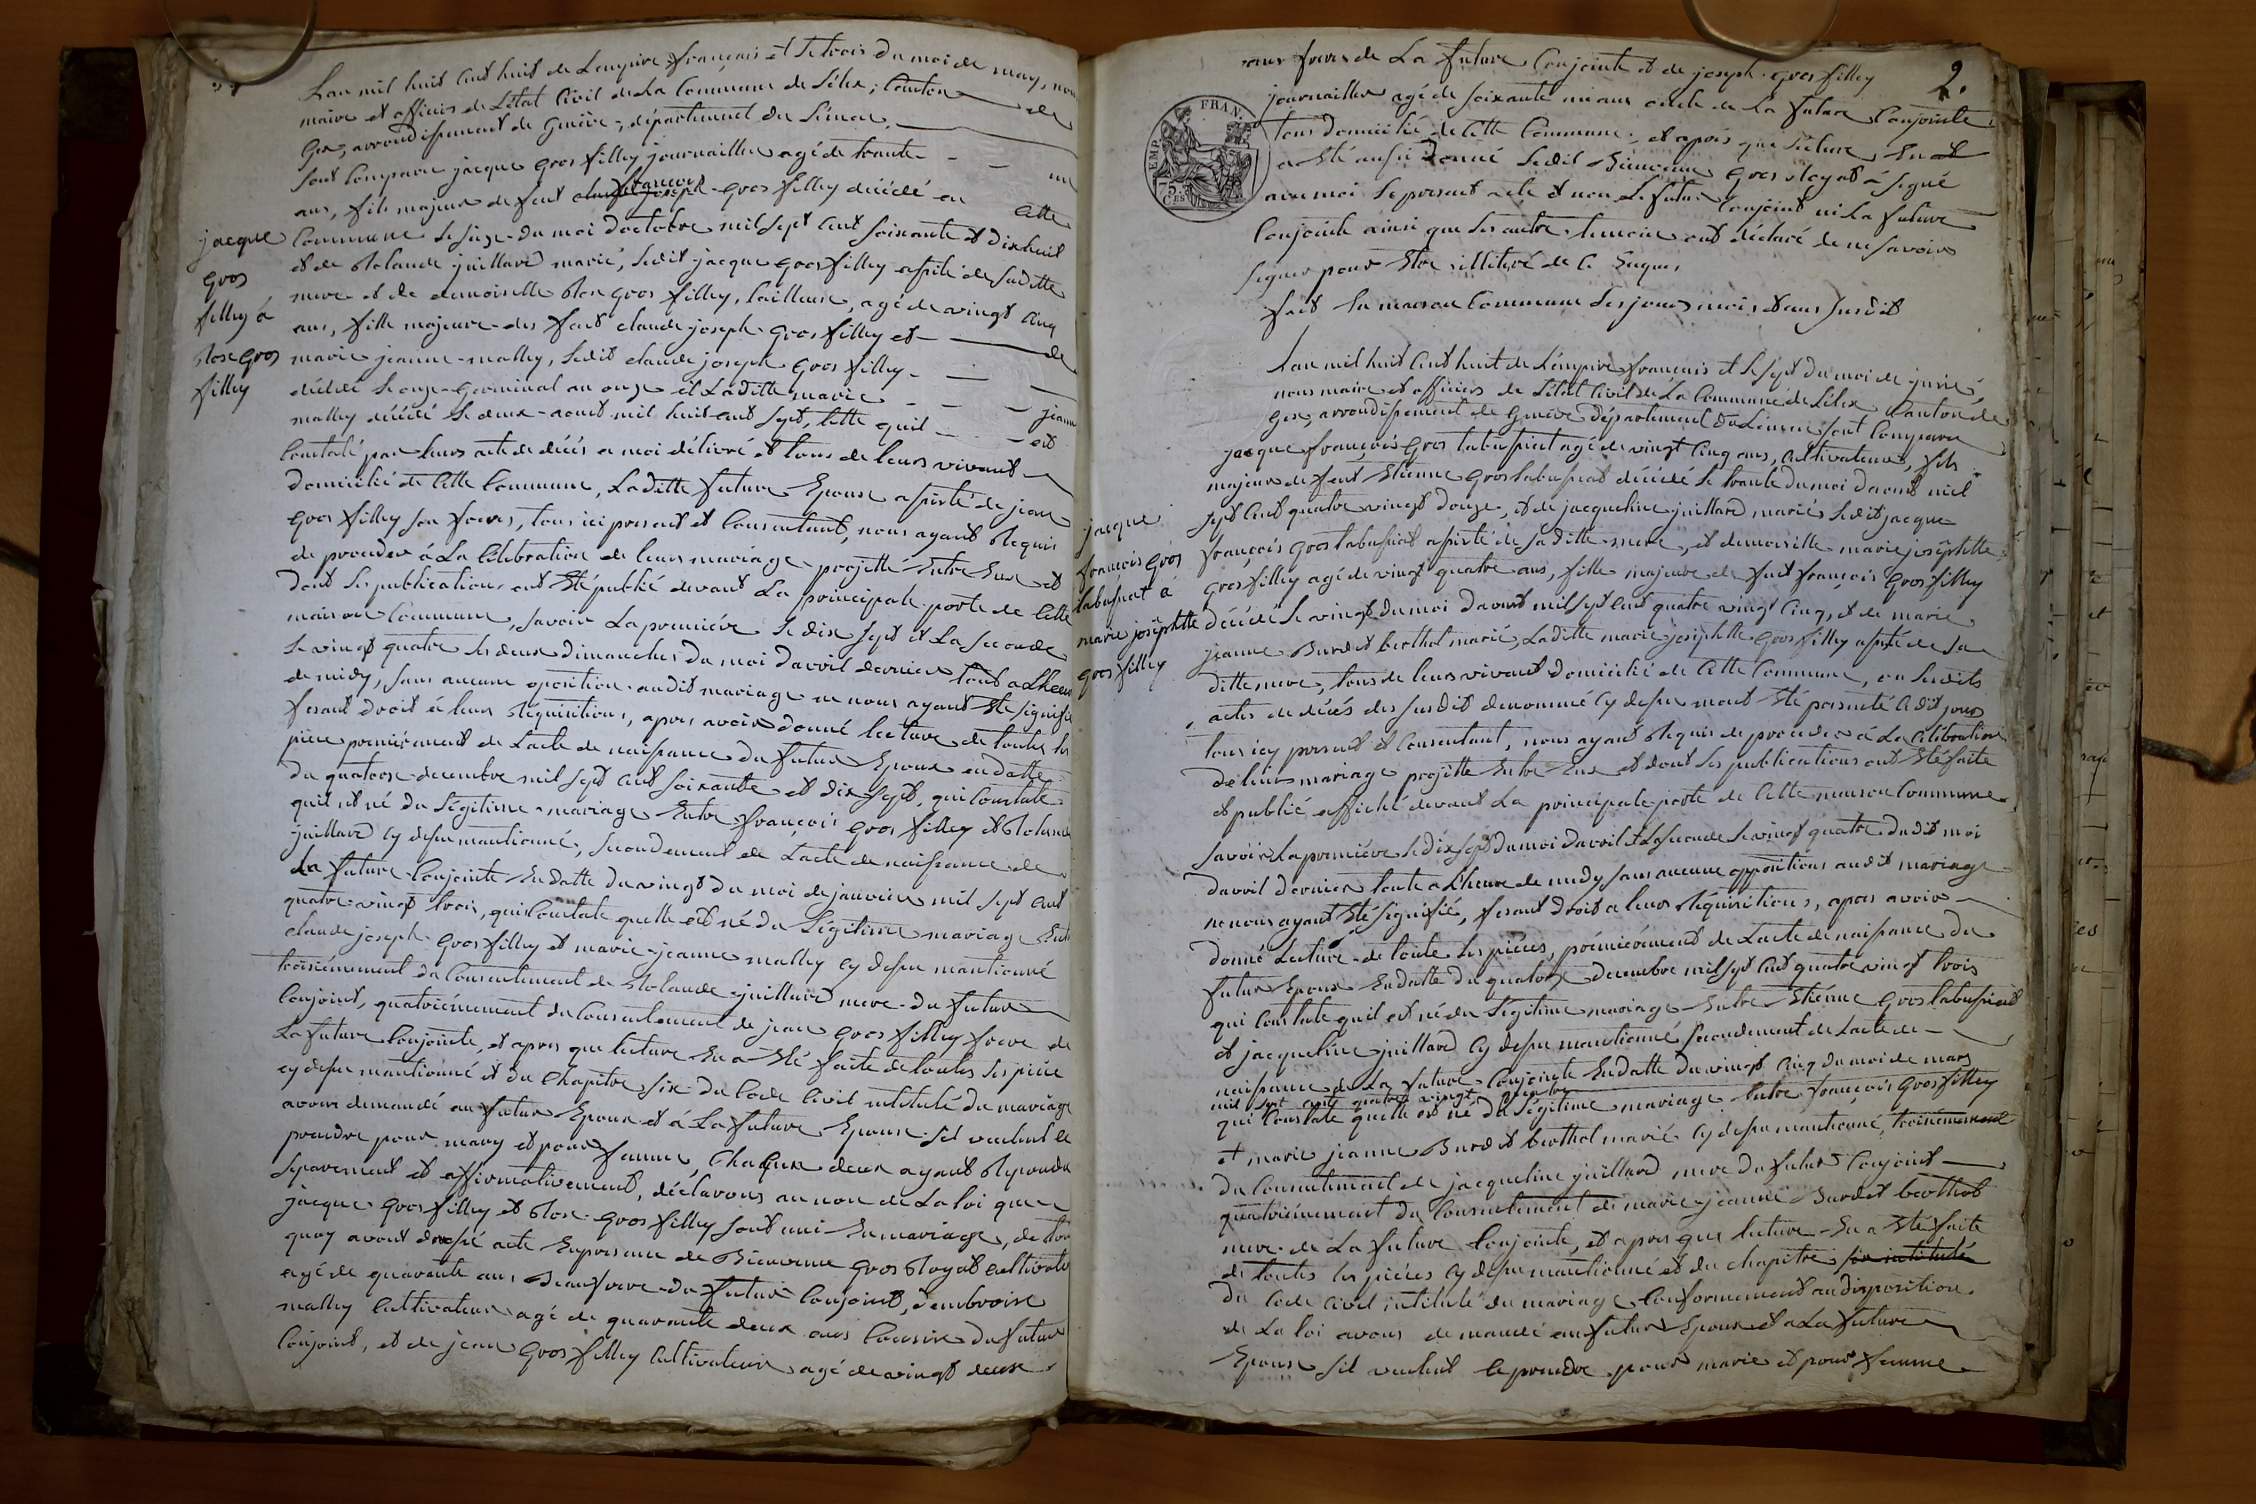 Lan mil huit cent huit de Lempire français et le trois du moi de may, nous
maire et officier de Létat Civil de La Commune de Lélex, Canton de
Gex, arrondissement de Genève, département du Léman,
sont comparu jacque gros filley journaillier agé de trente un
ans, fils majeur de feut françois gros filley décédé en cette
Commune le seize du moi doctobre mil sept cent soixante et dix huit
et de Rolande juillard marié, ledit jacque gros filley assisté de saditte
mere et de demoiselle Rose gros filley, tailleuse, agé de vingt cinq
ans, fille majeure des feut claude joseph gros filley et de
marie jeanne malley, ledit claude joseph gros filley
décédé le onze germinal an onze et Laditte marie jeanne
malley décédé le deux aout mil huit cent sept, cette quil est
Constaté par leurs acte de décés a moi délivré et tous de leurs vivant
domicilié de cette Commune, Laditte future Epouse assisté de jean
gros filley son frere, tous ici present et Consentant, nous ayant Requis
de proceder á La Célébration de leurs mariage projetté entre Eux et
dont les publications ont Eté publié devant La principale porte de cette
maison Commune, savoir La premiére le dix sept et La seconde
le vingt quatre les deux dimanches du moi davril dernier tout a Lheure
de midy, sans aucune oposition audit mariage ne nous ayant Eté signifié
fesant droit á leurs Réquisitions, apres avoir donné lecture de toutes les
piéce premiérement de Lacte de naissance du futur Epoux en datte
du quatorze decembre mil sept cent soixante et dix sept, qui Constate
quil est né du Légitime mariage Entre françois gros filley et Rolande
juillard cy dessu mentionné, secondement de Lacte de naissance de
La future Conjointe En datte du vingt du moi de janvier mil sept cent
quatre vingt trois, qui Constate quelle est né du Légitime mariage Entre
claude joseph gros filley et marie jeanne malley cy dessu mentionné
troisiémement du Consentement de Rolande juillard mere du futur
Conjoint, quatriémement du Consentement de jean gros filley frere de
La future Conjointe, et apres que lecture En a Eté faite de toutes les piéce
cy dessu mentionné et du chapitre six du Code Civil intitulé du mariage
avons demandé au futur Epoux et á La future Epouse sil veulent se
prendre pour mary et pour femme, chacun deux ayant Repondu
séparement et affirmativement, déclarons au nom de La loi que
jacque gros filley et Rose gros filley sont uni En mariage, de tout
quoy avons dressé acte En presence de Bienvenu gros Royat cultivateur
agé de quarante ans Beaufrere du futur Conjoint, d'embroise
malley Cultivateur agé de quarante deux ans Cousin du futur
Conjoint, et de jean gros filley Cultivateur agé de vingt deux
jacque
gros
filley á
Rose gros
filley
2.
ans frere de La future Conjointe et de joseph gros filley
journaillier agé de soixante un ans oncle de La future Conjointe
tous domicilié de cette Commune, et apres que lecture En
a Eté aussi donné ledit Bienvenu gros Royat á signé
avec moi le present acte et non Le futur Conjoint ni La future
Conjointe ainsi que les autre temoin ont déclaré de ne savoir
signer pour Etre illitéré de ce Enquis
fait En maison Commune les jour, mois et ans susdit
FRAN.
EMP.
75.
CES
Lan mil huit cent huit de Lémpire français et le sept du moi de juin,
nous maire et officier de Létat Civil de La Commune de Lélex Canton de
Gex, arrondissement de Genève, département du Léman, sont Comparu
jacque françois gros labussiat agé de vingt cinq ans, cultivateur, fils
majeur de feut Etienne gros labussiat décédé le trente du moi daout mil
sept cent quatre vingt douze, et de jacqueline juillard mariés ledit jacque
françois gros labussiat assisté de saditte mere, et demoiselle marie joséphtte
gros filley agé de vingt quatre ans, fille majeure de feut françois gros filley
décédé le vingt du moi davout mil sept cent quatre vingt cinq, et de marie
jeanne Burdet berthet marié, Laditte marie joséphtte gros filley assisté de sa
ditte mere, tous de leurs vivant domicilié de cette Commune, ou lesdits
actes de décés des susdit denommé cy dessu mont Eté presenté ce dit jour
tous icy present et Consentant, nous ayant Requis de proceder á La Célébration
de leurs mariage projetté Entre Eux et dont les publications ont Eté faite
et publié affiché devant La principale porte de cette maison Commune
savoir La premiére le dix sept du moi davril et La seconde le vingt quatre dudit moi
davril dernier toute a Lheure de midy sans aucune oppositions audit mariage
ne nous ayant Eté signifié, fesant droit a leurs Réquisitions, apres avoir
donné Lecture de toute les piéces, prémiérement de Lacte de naissance du
futur Epoux En datte du quatorze decembre mil sept cent quatre vingt trois
qui Constate quil est né du Légitime mariage Entre Etiénne gros labussiat
et jacqueline juillard cy dessu mentionné secondement de Lacte de
naissance de La future Conjointe En datte du vingt cinq du moi de mars
mil sept cent quatre vingt quatre
qui Constate quelle est né du Légitime mariage Entre françois gros filley
et marie jeanne Burdet berthet marié cy dessu mentionné, troisiémement
du Consentement de jacqueline juillard mere du futur Conjoint
quatriémement du Consentement de marie jeanne Burdet berthet
mere de La future Conjointe, et apres que lecture En a Eté faite
de toutes les piéces cy dessu mentionné et du chapitre six intitulé
du Code Civil, intitulé du mariage Conformement au disposition
de La loi avons demandé au futur Epoux et a La future
Epouse sil veulent se prendre pour marie et pour femme
jacque
françois gros
labussiat á
marie joséphtte
gros filley